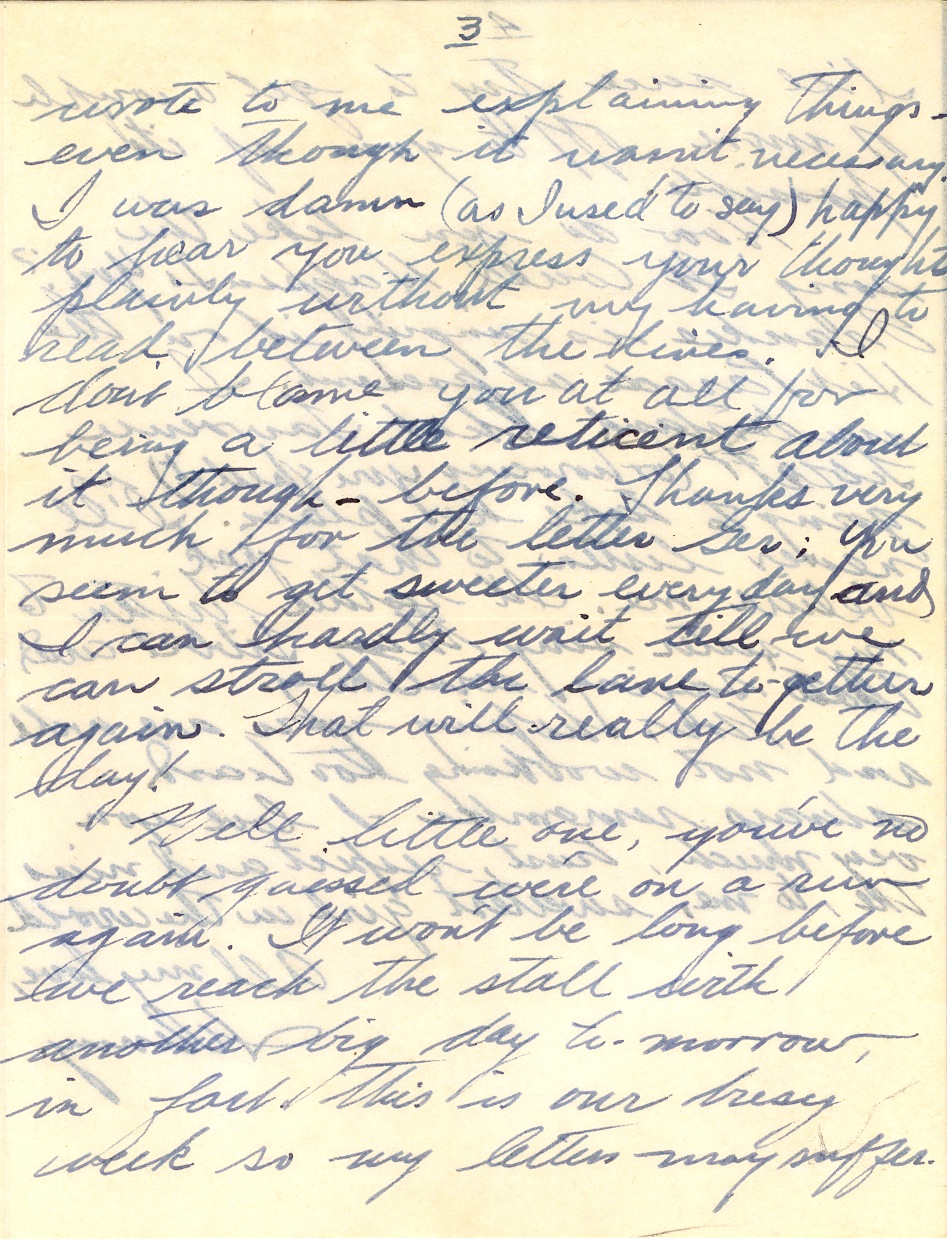 3
wrote to me explaining things -
even though it wasn't necessary.
I was damn (as I used to say) happy
to hear you express your thoughts
plainly without my having to
read between the lines. I
don't blame you at all for
being a little reticent about
it though - before. Thanks very
much for the letter Ger; you
seem to get sweeter everyday and
I can hardly wait till we
can stroll the lane to-gether
again. That will really be the
day!
Well little one, you've no
doubt guessed we're on a run
again. It won't be long before
we reach the stall with
another big day to-morrow,
in fact this is our busy
week so my letters may suffer.